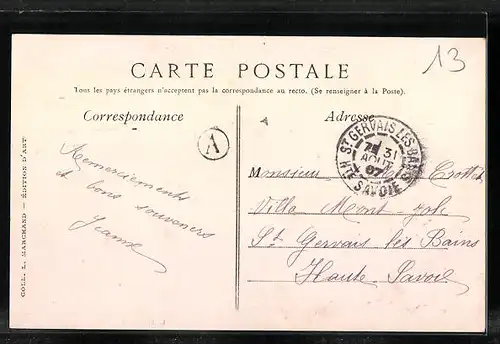 13
CARTE POSTALE
Tous les pays étrangers n'acceptent pas la correspondance au recto. (Se renseigner à la Poste).
Correspondance
Adresse
A
ST GERVAIS-LES-BAINS
31
AOUT
07
HTE SAVOIE
Remerciements
et bons souvenirs
Jeanne
Monsieur Crottet
Villa Mont-joli
St Gervais les Bains
Haute Savoie
COLL. L. MARCHAND — ÉDITION D'ART